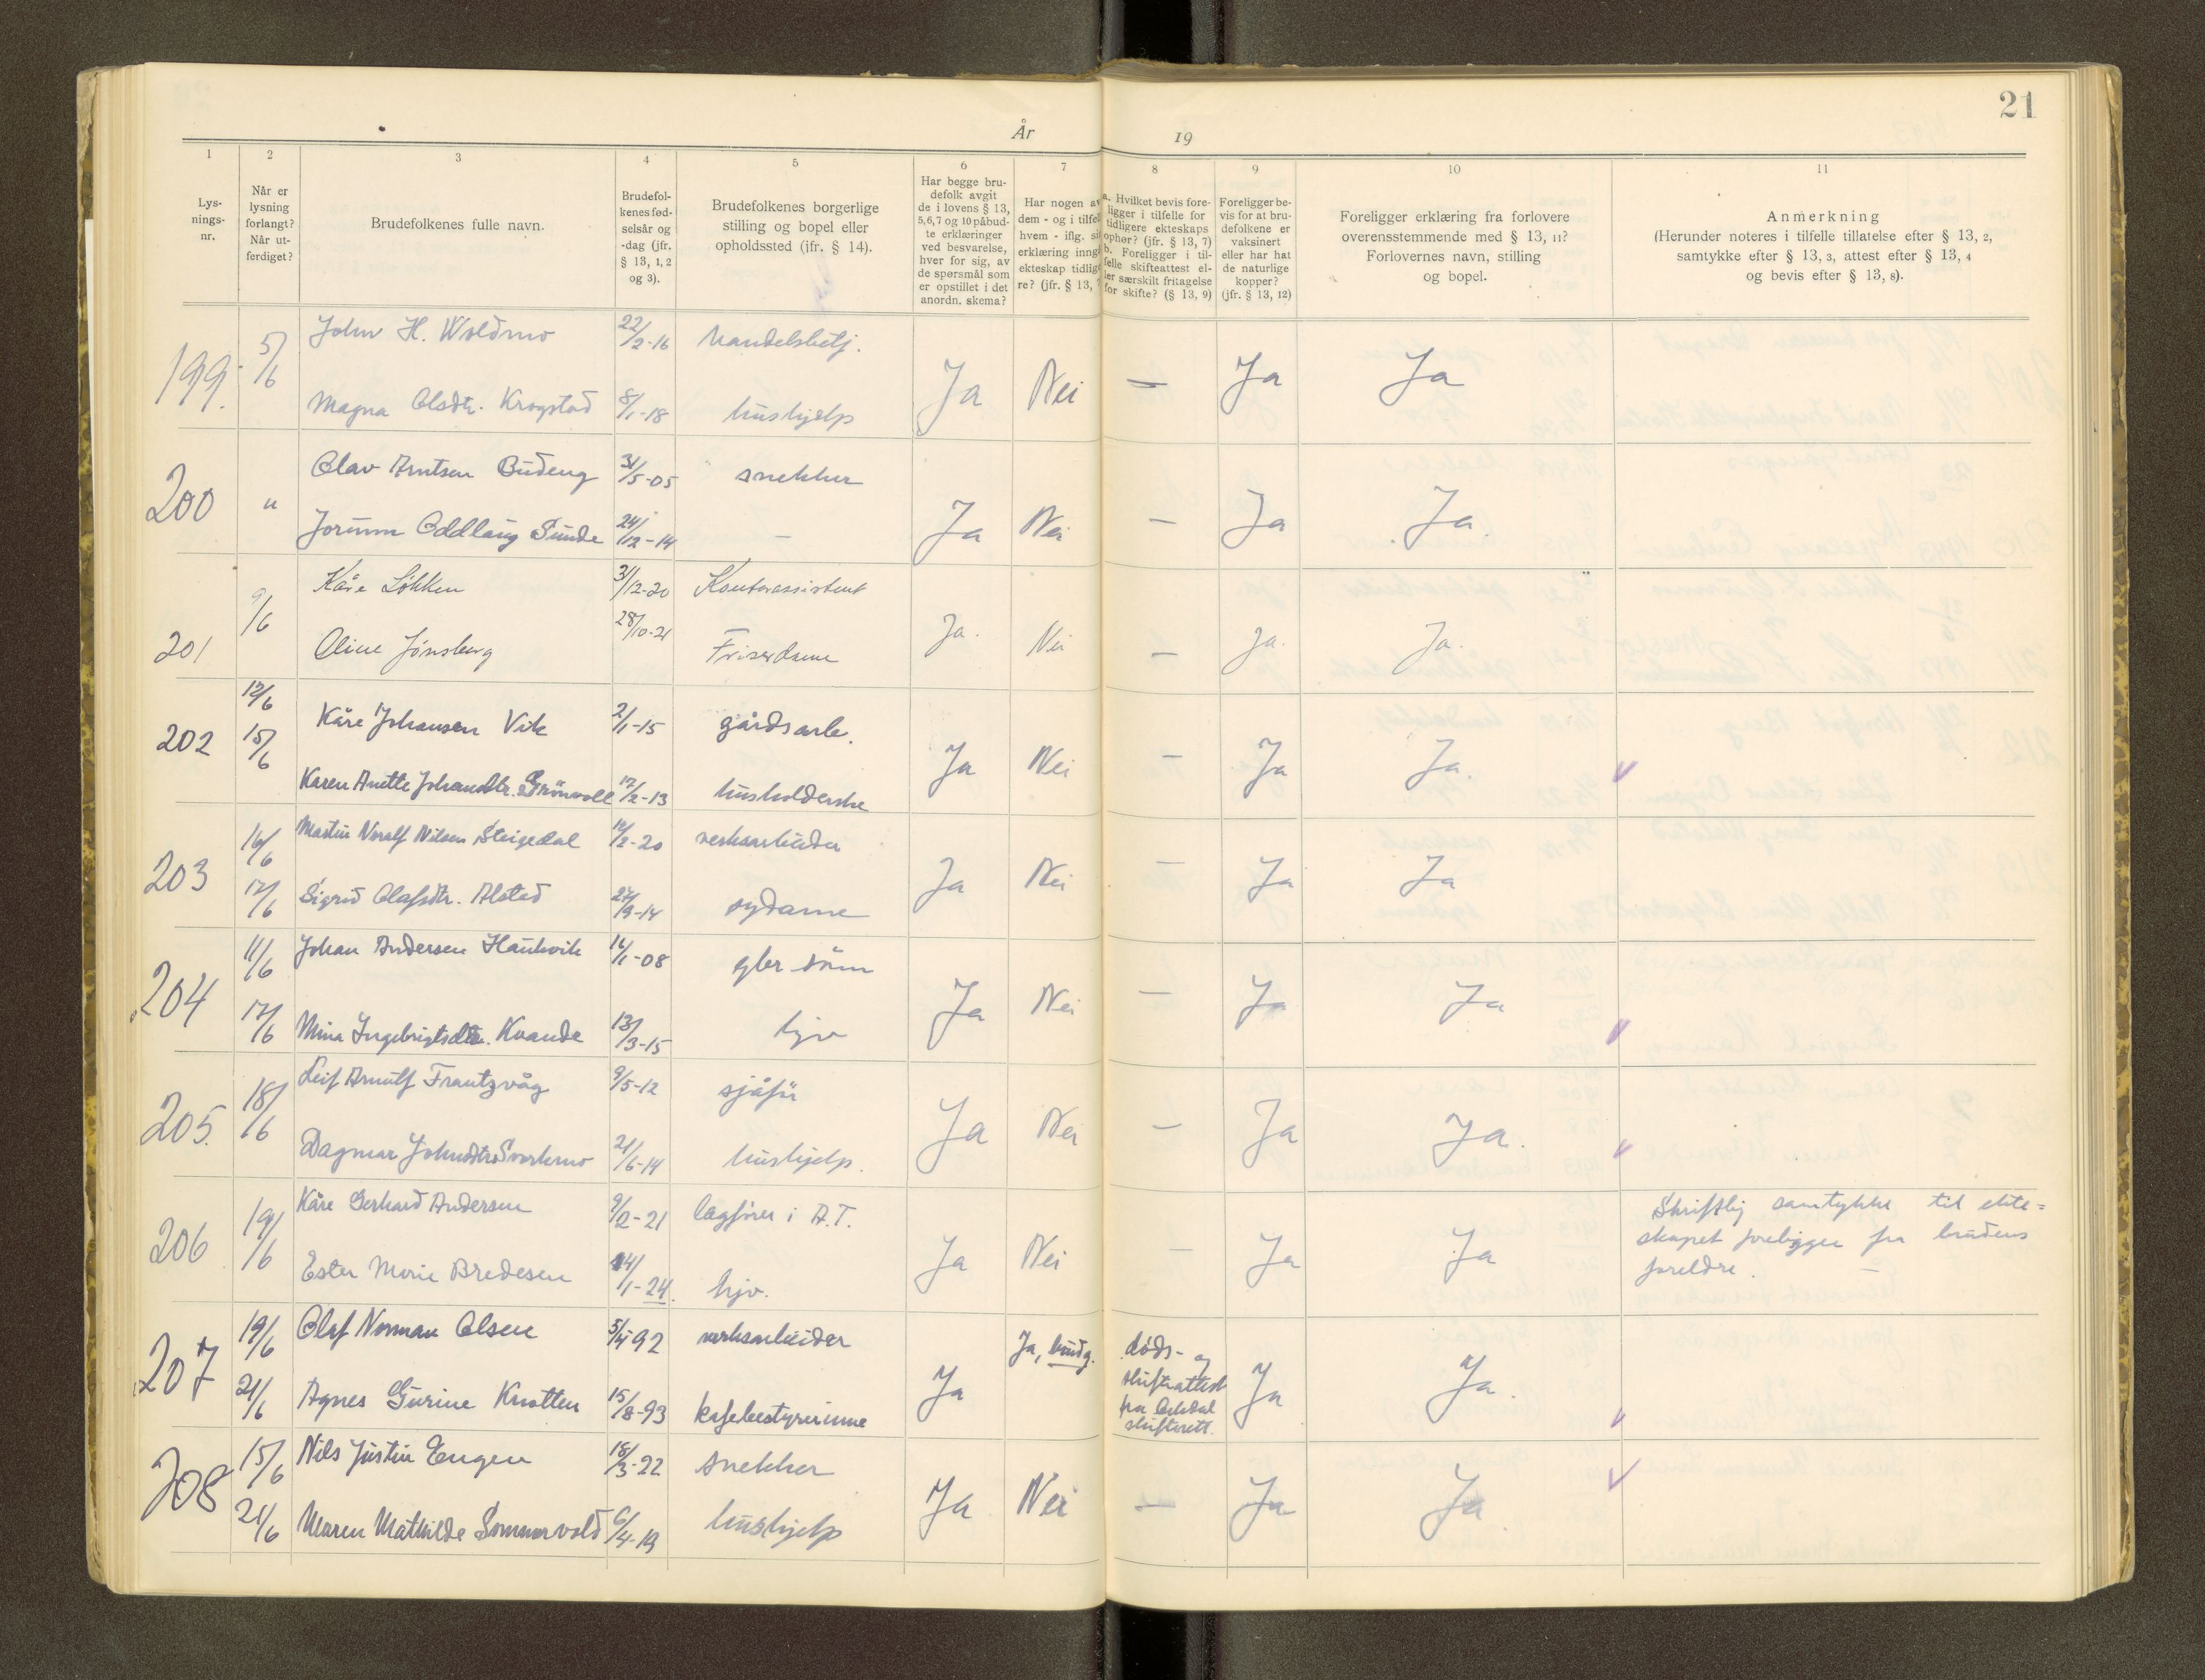 21
År 19
1 2 3 4 5 6 7 8 9 10 11
Lys-
nings-
nr.
Når er
lysning
forlangt?
Når ut-
ferdiget?
Brudefolkenes fulle navn.
Brudefol-
kenes fød-
selsår og
-dag (jfr.
§ 13, 1, 2
og 3).
Brudefolkenes borgerlige
stilling og bopel eller
opholdssted (jfr. § 14).
Har begge bru-
defolk avgit
de i lovens § 13,
5,6,7 og 10 påbud-
te erklæringer
ved besvarelse,
hver for sig, av
de spørsmål som
er opstillet i det
anordn. skema?
Har nogen av
dem - og i tilfel
hvem - iflg. si
erklæring inng
ekteskap tidlig
re? (jfr. § 13,
a. Hvilket bevis fore-
ligger i tilfelle for
tidligere ekteskaps
ophør? (jfr. § 13, 7)
b. Foreligger i til-
felle skifteattest el-
ler særskilt fritagelse
for skifte? (§ 13, 9)
Foreligger be-
vis for at bru-
defolkene er
vaksinert
eller har hat
de naturlige
kopper?
(jfr. § 13, 12)
Foreligger erklæring fra forlovere
overensstemmende med § 13, 11?
Forlovernes navn, stilling
og bopel.
Anmerkning
(Herunder noteres i tilfelle tillatelse efter § 13, 2,
samtykke efter § 13, 3, attest efter § 13, 4
og bevis efter § 13, 8).
199. 5/6 John H. Woldmo 22/2-16 handelsbetj.
Magna Olsdtr. Krogstad 8/1-18 hushjelp Ja Nei — Ja Ja
200 " Olav Arntsen Budeng 31/5-05 snekker
Jorunn Oddlaug Sunde 24/12-14 — Ja Nei — Ja Ja.
201 9/6 Kåre Løkken 31/12-20 Kontorassistent
Oline Jønsberg 28/10-21 Friserdame Ja. Nei — Ja. Ja.
202 12/6 Kåre Johansen Vik 2/1-15 gårdsarb.
15/6 Karen Anette Johansdtr. Grönvoll 17/2-13 husholderske Ja Nei — Ja Ja.
203 16/6 Martin Noralf Nilsen Steigedal 12/2-20 verksarbeider
17/6 Sigrid Olafsdtr. Alstad 27/9-14 sydame Ja Nei — Ja Ja
204 11/6 Johan Andersen Haukvik 16/1-08 gbr. sönn
17/6 Mina Ingebrigtsdtr. Kvande 13/3-15 hjv Ja Nei — Ja Ja
205. 18/6 Leif Arnulf Frantzvåg 9/5-12 sjåfør
Dagmar Johnsdtr. Svorkmo 21/6-14 hushjelp. Ja Nei — Ja Ja.
206 19/6 Kåre Gerhard Andersen 9/2-21 lagfører i A.T.
Ester Marie Bredesen 14/1-24. hjv. Ja Nei — Ja Ja
Skriftlig samtykke til ekte=
skapet foreligger fra brudens
foreldre. —
207 19/6 Olaf Norman Olsen 5/4-92 verksarbeider Ja, brudg.
21/6 Agnes Gurine Knotten 15/8-93 kafebestyrerinne Ja
døds- og
skifteattest
fra Orkdal
skifterett.
Ja Ja.
208 15/6 Nils Justin Engen 18/3-22 snekker
21/6 Maren Mathilde Sommervold 6/4-19 hushjelp Ja Nei — Ja Ja